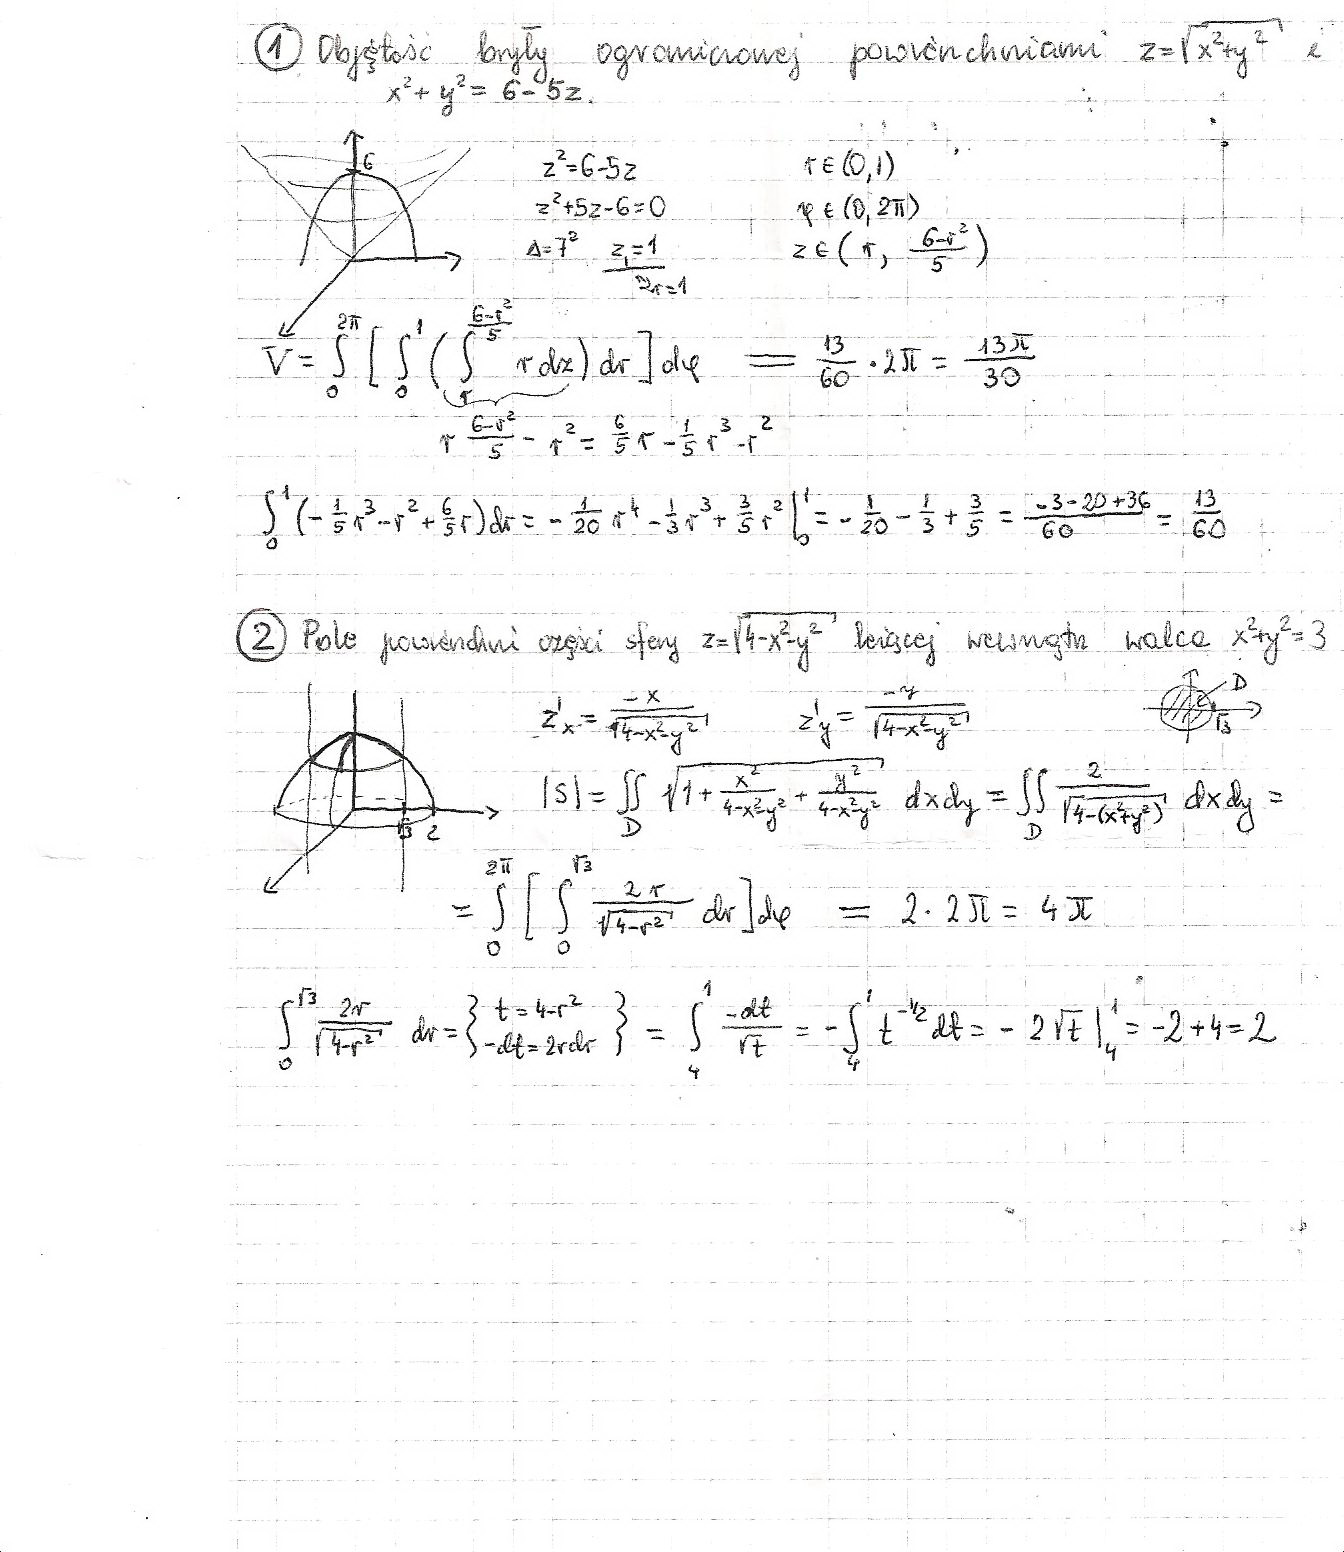 ① Objętość bryły ograniczonej powierzchniami z=√(x²+y²) i
x²+y²= 6-5z.
6
z²=6-5z r∈(0,1)
z²+5z-6=0 φ∈(0,2π)
Δ=7² z₁=1 z∈(r, (6-r²)/5)
r=1
V= ∫₀^2π [ ∫₀^1 ( ∫_r^((6-r²)/5) r dz) dr ] dφ = 13/60 · 2π = 13π/30
r (6-r²)/5 - r² = 6/5 r - 1/5 r³ - r²
∫₀^1 (-1/5 r³ - r² + 6/5 r) dr = -1/20 r⁴ - 1/3 r³ + 3/5 r² |₀^1 = -1/20 - 1/3 + 3/5 = (-3-20+36)/60 = 13/60
② Pole powierzchni części sfery z=√(4-x²-y²) leżącej wewnątrz walca x²+y²=3
z'x = -x/√(4-x²-y²) z'y = -y/√(4-x²-y²) D √3
|S| = ∬_D √(1 + x²/(4-x²-y²) + y²/(4-x²-y²)) dxdy = ∬_D 2/√(4-(x²+y²)) dxdy =
√3 2
= ∫₀^2π [ ∫₀^√3 2r/√(4-r²) dr ] dφ = 2·2π = 4π
∫₀^√3 2r/√(4-r²) dr = { t=4-r² -dt=2rdr } = ∫₄^1 -dt/√t = -∫₄^1 t^(-1/2) dt = -2√t |₄^1 = -2+4=2